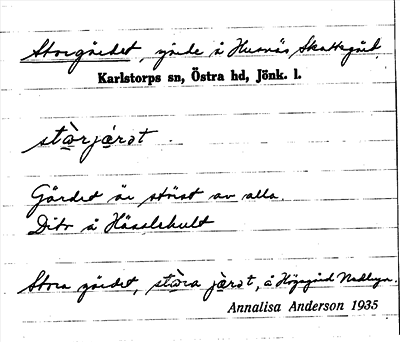 Storgärdet, gärde å Husnäs, Skattegård.
Karlstorps sn, Östra hd, Jönk. l.
stòrjærət.
Gärdet är störst av alla.
Dito å Hässlehult
Stora gärdet, stòra jærət, å Högagärd
Annalisa Anderson 1935